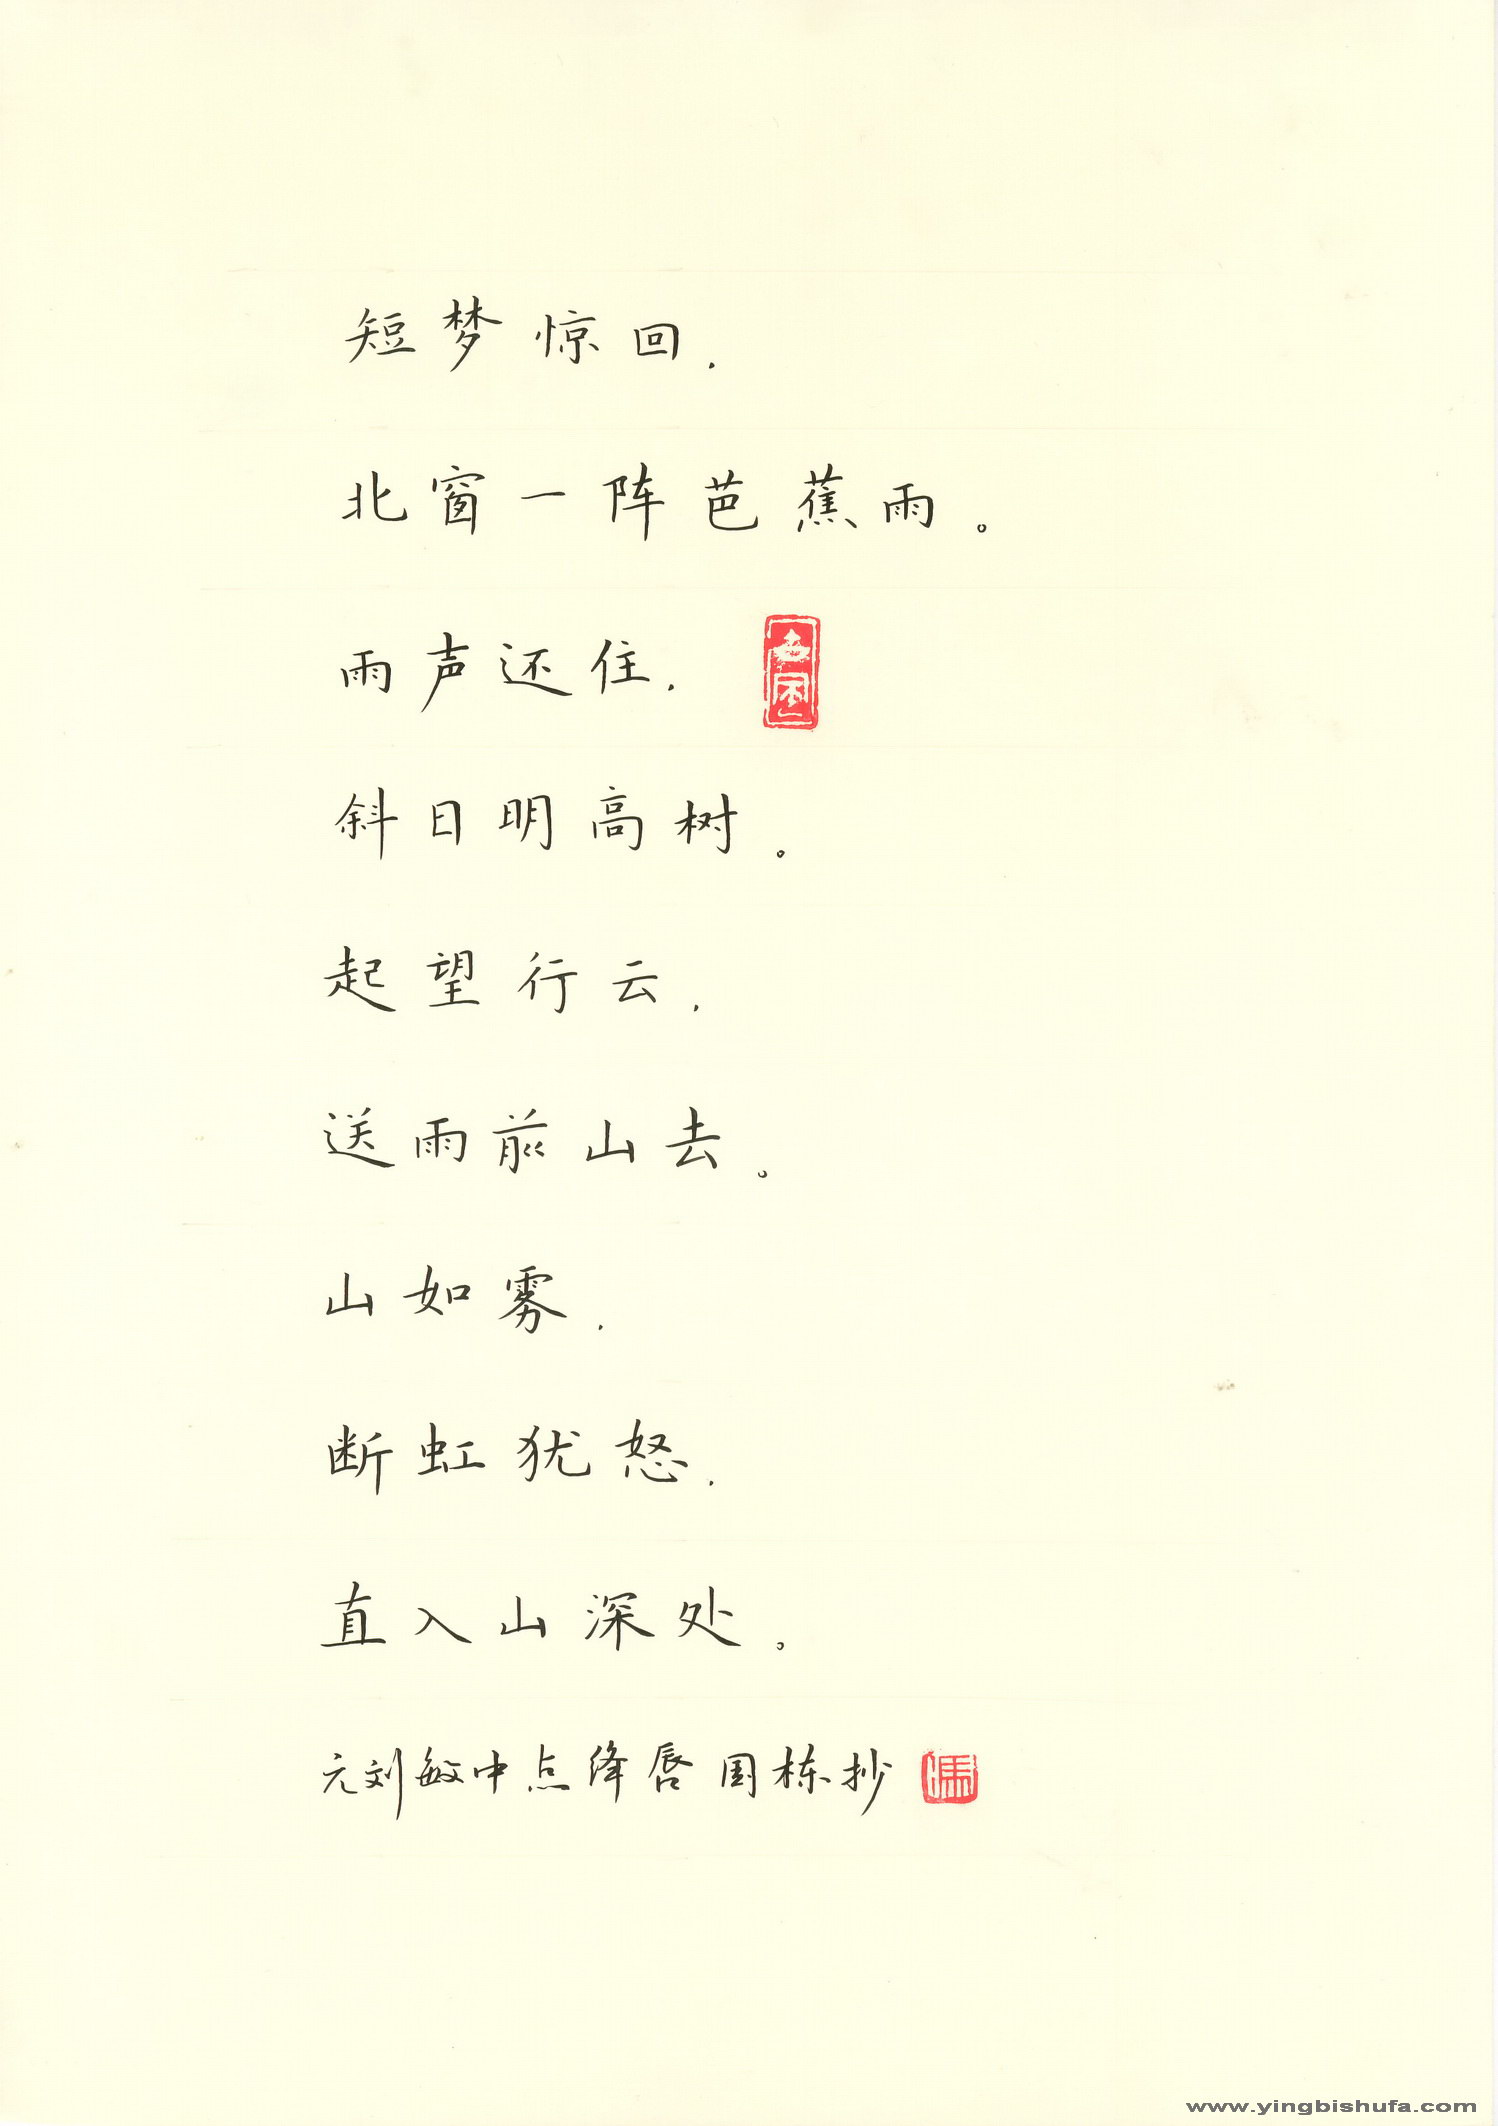 短梦惊回，
北窗一阵芭蕉雨。
雨声还住，
斜日明高树。
起望行云，
送雨前山去。
山如雾，
断虹犹怒，
直入山深处。
元刘敏中点绛唇 国栋抄
www.yingbishufa.com